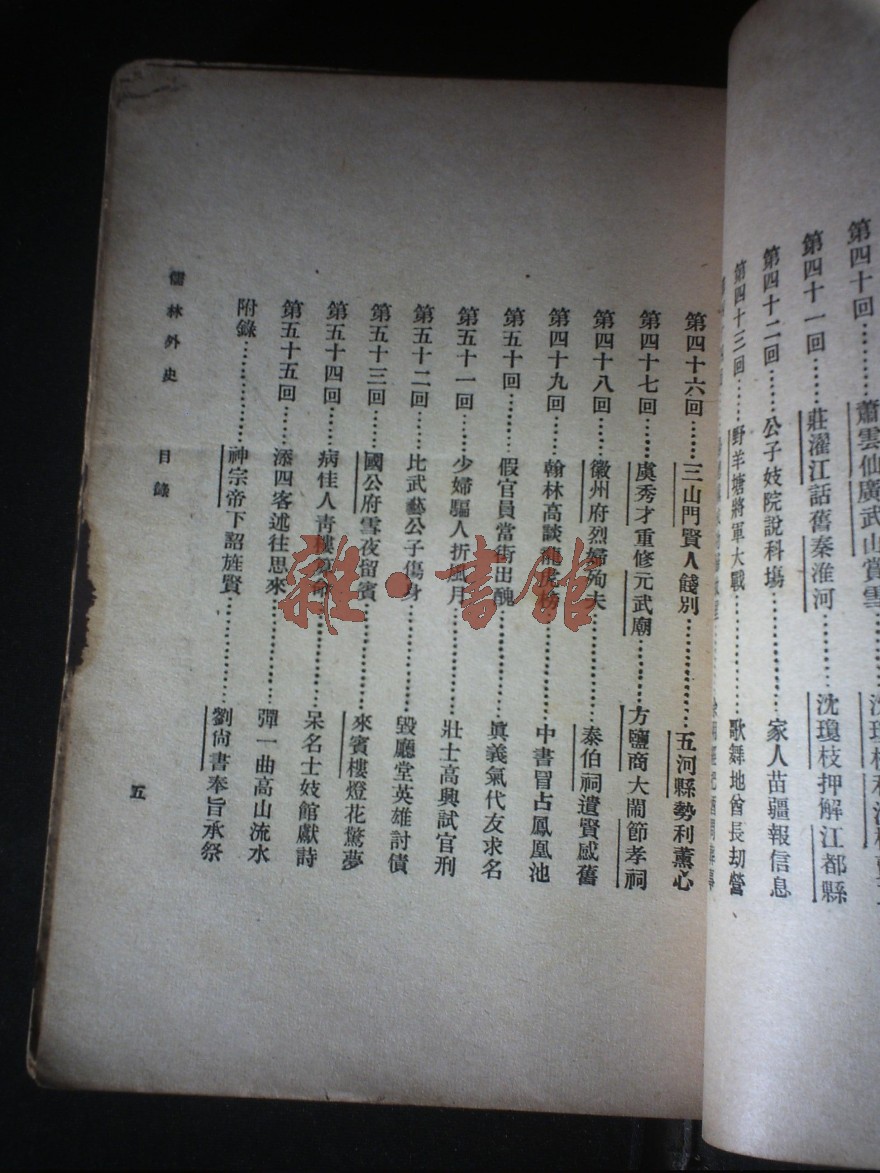 第四十回……蕭雲仙廣武山賞雪……沈瓊枝利涉橋
第四十一回……莊濯江話舊秦淮河……沈瓊枝押解江都縣
第四十二回……公子妓院說科場……家人苗疆報信息
第四十三回……野羊塘將軍大戰……歌舞地酋長刦營
第四十六回……三山門賢人餞別……五河縣勢利薰心
第四十七回……虞秀才重修元武廟……方鹽商大鬧節孝祠
第四十八回……徽州府烈婦殉夫……泰伯祠遺賢感舊
第四十九回……翰林高談龍虎榜……中書冒占鳳凰池
第五十回……假官員當街出醜……眞義氣代友求名
第五十一回……少婦騙人折風月……壯士高興試官刑
第五十二回……比武藝公子傷身……毀廳堂英雄討債
第五十三回……國公府雪夜留賓……來賓樓燈花驚夢
第五十四回……病佳人青樓算命……呆名士妓館獻詩
第五十五回……添四客述往思來……彈一曲高山流水
附錄……神宗帝下詔旌賢……劉尙書奉旨承祭
儒林外史　目錄　五
雜·書館